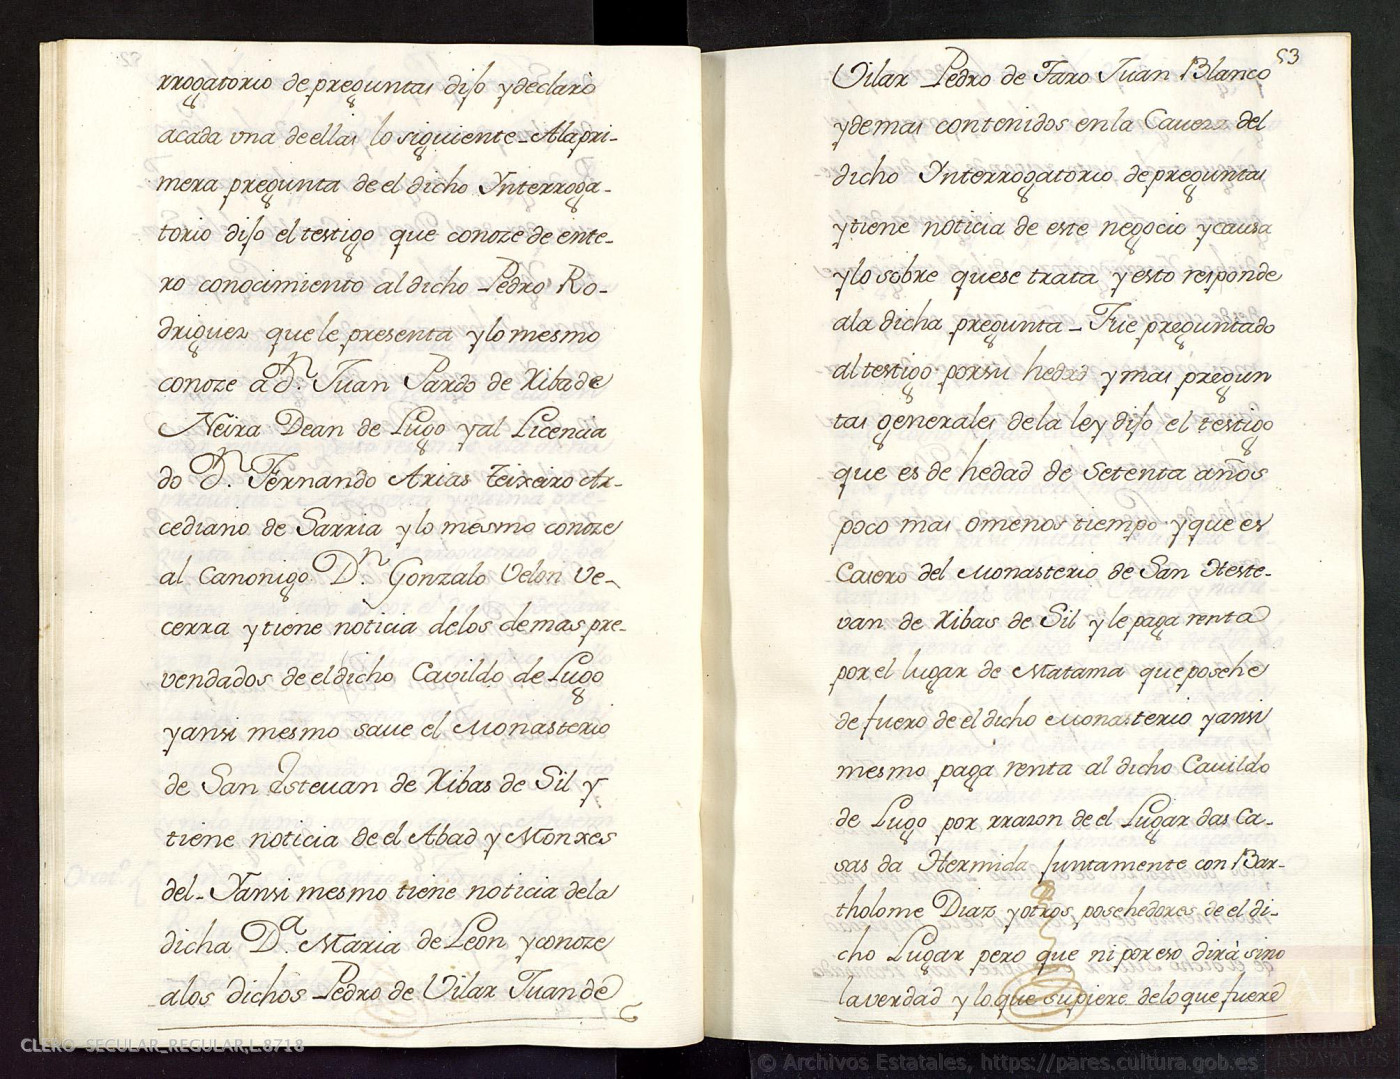 rrogatorio de preguntas dijo y declaró
acada vna de ellas lo siguiente_ Ala pri-
mera pregunta de el dicho Ynterroga-
torio dijo el testigo que conoze de ente-
ro conocimiento al dicho Pedro Ro-
driguez que le presenta y lo mesmo
conoze a Dn. Juan Pardo de Ribade
Neira Dean de Lugo y al Licencia
do Dn. Fernando Arias teixeiro Ar-
cediano de Sarria y lo mesmo conoze
al Canonigo Dn. Gonzalo Velon Ve-
cerra y tiene noticia delos demas pre-
vendados de el dicho Cavildo de Lugo
y ansi mesmo saue el Monasterio
de San Esteuan de Ribas de Sil y
tiene noticia de el Abad y Monxes
del- Y ansi mesmo tiene noticia dela
dicha Da. Maria de Leon y conoze
alos dichos Pedro de Vilar Juan de
53
Vilar Pedro de Faro Juan Blanco
y demas contenidos en la Caueza del
dicho Ynterrogatorio de preguntas
y tiene noticia de este negocio y causa
y lo sobre que se trata y esto responde
ala dicha pregunta_ Fue preguntado
al testigo por su hedad y mas pregun
tas generales dela ley dijo el testigo
que es de hedad de setenta años
poco mas omenos tiempo y que es
Casero del Monasterio de San Heste-
van de Ribas de Sil y le paga renta
por el lugar de Matama que posehe
de fuero de el dicho Monasterio y ansi
mesmo paga renta al dicho Cauildo
de Lugo por rrazon de el Lugar das Ca-
sas da Hermida Juntamente con Bar-
tholome Diaz y otros posehedores de el di-
cho Lugar pero que ni por eso dirà sino
la verdad y lo que supiere de lo que fuere
CLERO-SECULAR_REGULAR,L.8718
© Archivos Estatales, https://pares.cultura.gob.es
ARCHIVOS
ESTATALES